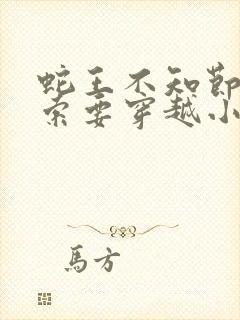 蛇王不知節
索要穿越小
馬方